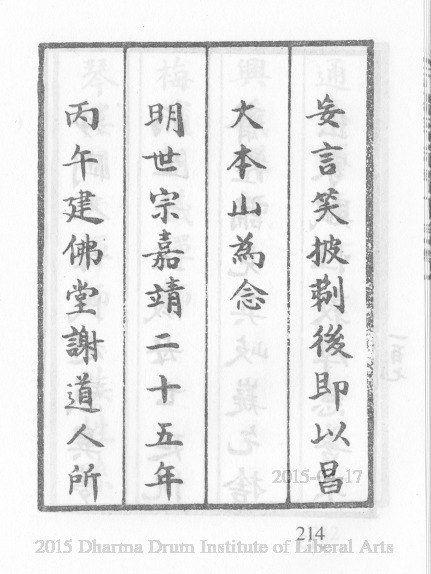 妄言笑披剃後即以昌
大本山為念
明世宗嘉靖二十五年
丙午建佛堂謝道人所
214
2015 Dharma Drum Institute of Liberal Arts